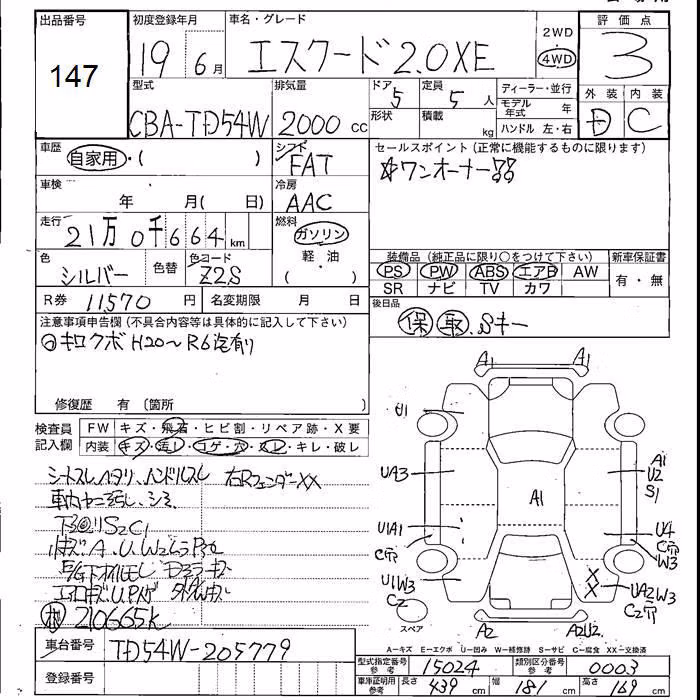 出品番号
147
初度登録年月
19 6月
車名・グレード
エスクード2.0XE
2WD
4WD
評価点
3
外装 内装
D C
型式
CBA-TD54W
排気量
2000cc
ドア 5
形状
定員 5人
積載 kg
ディーラー・並行
モデル年式 年
ハンドル 左・右
車歴
自家用・( )
シフト
FAT
セールスポイント(正常に機能するものに限ります)
ワンオーナー
車検
年 月( 日)
冷房
AAC
走行
21万0千664km
燃料
ガソリン
軽・油
( )
色
シルバー
色替
色コード
Z2S
装備品(純正品に限り○をつけて下さい)
PS PW ABS エアB AW
SR ナビ TV カワ
新車保証書
有・無
R券 11570円
名変期限 月 日
後日品
保 取 .Sキー
注意事項申告欄(不具合内容等は具体的に記入して下さい)
キロクボ H20~R6迄有り
修復歴 有 〔箇所 〕
検査員記入欄
FW キズ・飛石・ヒビ割・リペア跡・X要
内装 キズ・汚し・コゲ・穴・スレ・キレ・破レ
シートスレ、ハタリ、ハンドルスレ 右Rフェンダーxx
車内ヤニ汚し、シミ
210665K
A1 A1
U1
UA3
A1
U2
S1
A1
U1A1
U4
W3
U1W3
C2
X
X
UA2W3
スペア
A2 A2U2
A-キズ E-エクボ U-凹み W-補修跡 S-サビ C-腐食 XX-交換済
車台番号
TD54W-205779
登録番号
型式指定番号 参考 15024
類別区分番号 参考 0003
車庫証明用参考 長さ 439cm 幅 181cm 高さ 169cm